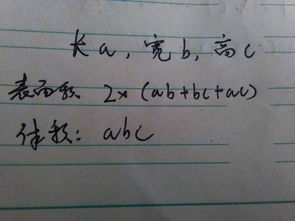 长a,宽b,高c
表面积 2×(ab+bc+ac)
体积: abc